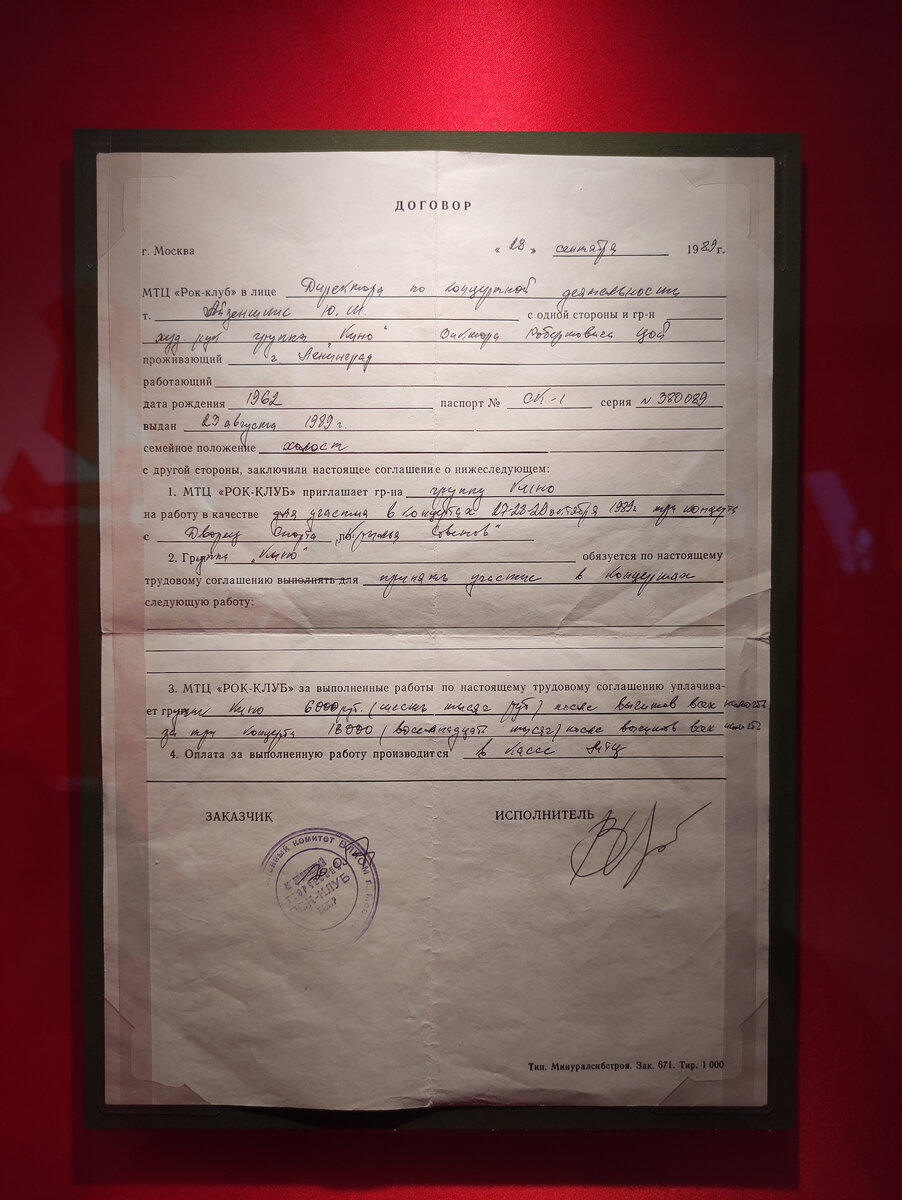 ДОГОВОР
г. Москва « 28 » сентября 1989 г.
МТЦ «Рок-клуб» в лице Директора по концертной деятельности
т. Айзеншпис Ю. Ш. с одной стороны и гр-н
худ. рук группа "Кино" Виктора Робертовича Цой
проживающий г. Ленинград
работающий
дата рождения 1962 паспорт № СК-1 серия № 380089
выдан 23 августа 1989 г.
семейное положение холост
с другой стороны, заключили настоящее соглашение о нижеследующем:
1. МТЦ «РОК-КЛУБ» приглашает гр-на группу Кино
на работу в качестве для участия в концертах 27-28-29 октября 1989г три концерта
с Дворец Спорта по "Крылья Советов"
2. Группа "Кино" обязуется по настоящему
трудовому соглашению выполнять для принять участие в концертах
следующую работу:
3. МТЦ «РОК-КЛУБ» за выполненные работы по настоящему трудовому соглашению уплачива-
ет группе Кино 6000 руб. (шесть тысяч руб) после вычетов всех налогов
за три концерта 18000 (восемнадцать тысяч) после вычетов всех налогов
4. Оплата за выполненную работу производится в кассе МТЦ
ЗАКАЗЧИК ИСПОЛНИТЕЛЬ
КОМИТЕТ ВЛКСМ г.
РОК-КЛУБ
Тип. Минуралсибстроя. Зак. 671. Тир. 1 000